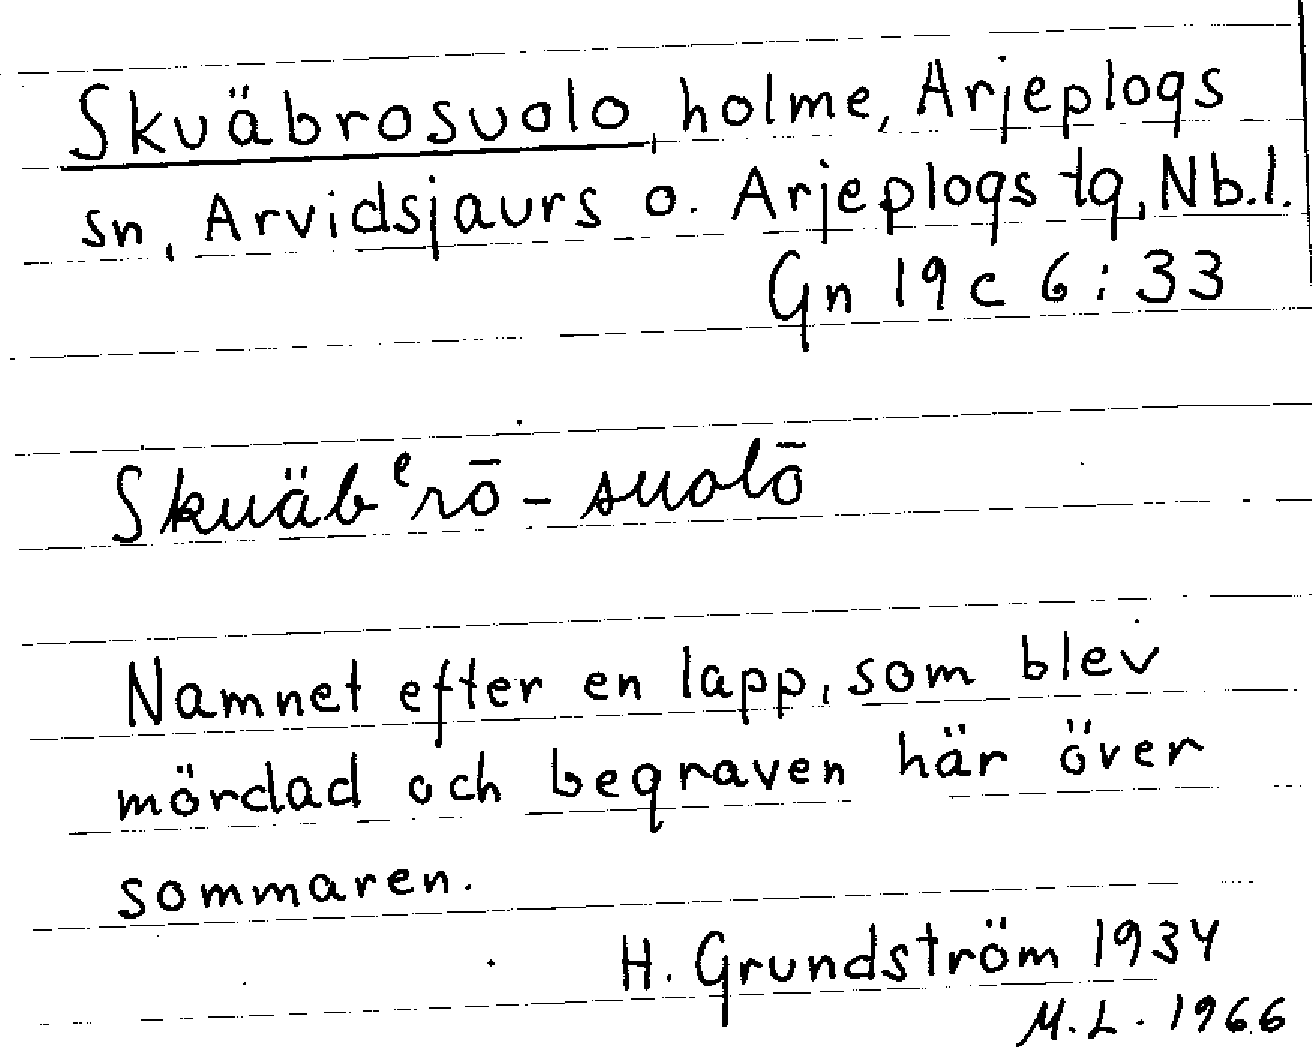 Skuäbrosuolo, holme, Arjeplogs
sn, Arvidsjaurs o. Arjeplogs tg, Nb.l.
Gn 19c 6:33
Skuäbᵉrō-suolō
Namnet efter en lapp, som blev
mördad och begraven här över
sommaren.
H. Grundström 1934
M.L. 1966